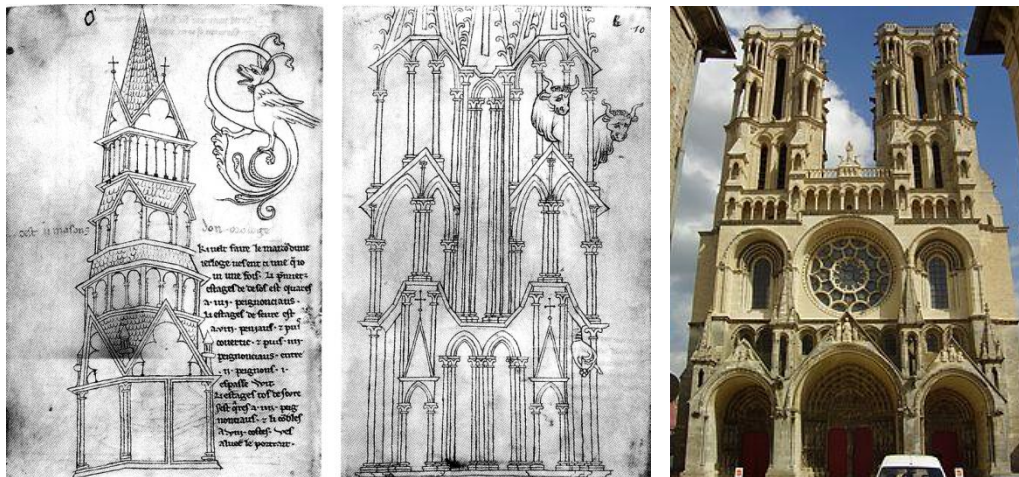 cest li masons
don orologe
ki velt faire le maizo dune
ierloge vesent ci une q̄ io
vi une fois. li p̄mier
estages de desos est quares
a .iiii. peignonciaus.
li estages deseure est
a .viii. peniaus. ⁊ puis
couertic. ⁊ puis .iiii.
peignonciaus. entre
.ii. peignons .i.
espasse wit.
li estages tos deseure
sest q̄res a .iiii. peig
nonciaus. ⁊ li cobles
a .viii. costes. ves
aluec le portrait.
10